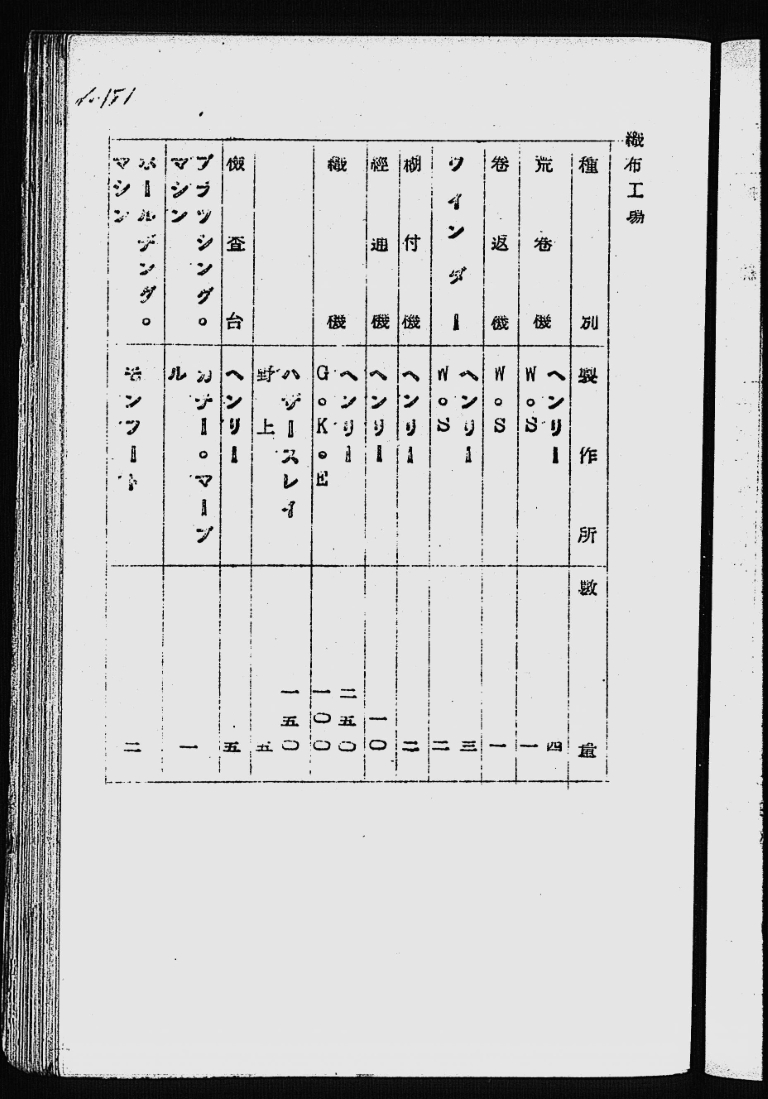 織布工場
種別 製作所 数量
荒巻機 ヘンリー 四
W。S 一
巻返機 W。S 一
ワインダー ヘンリー 三
W。S 二
糊付機 ヘンリー 二
経通機 ヘンリー 一〇
織機 ヘンリー 二五〇
G。K。E 一〇〇
ハザースレイ 一五〇
野上 五
検査台 ヘンリー 五
ブラッシング。 カナー。マーブ
マシン ル 一
ホールヂング。 モンフート 二
マシン